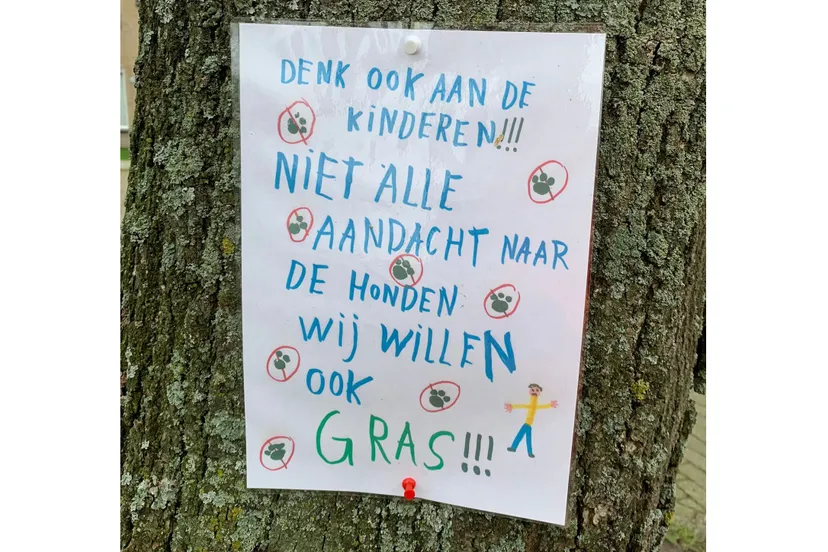 DENK OOK AAN DE
KINDEREN!!!
NIET ALLE
AANDACHT NAAR
DE HONDEN
WIJ WILLEN
OOK
GRAS!!!